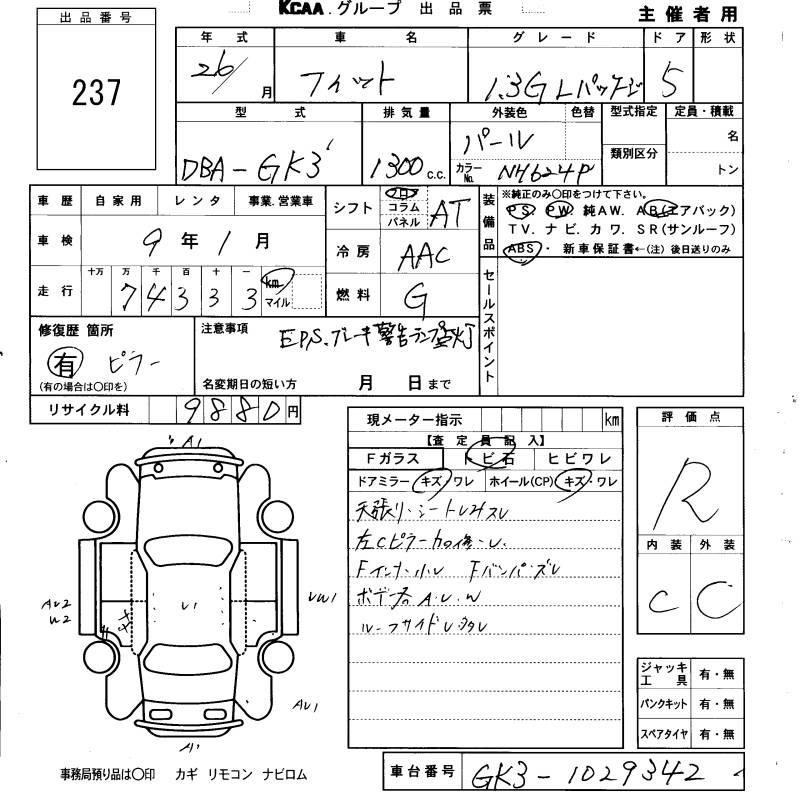 KCAA.グループ 出品票
主催者用
出品番号
237
年式 車名 グレード ドア 形状
26/月 フィット 1.3G Lパッケージ 5
型式 排気量 外装色 色替 型式指定 定員・積載
DBA-GK3 1300c.c. パール 類別区分 名
カラーNo. NH624P トン
車歴 自家用 レンタ 事業.営業車
車検 9年1月
走行 十万 万 千 百 十 一
74333 km マイル
シフト フロア コラム パネル AT
冷房 AAC
燃料 G
装備品
※純正のみ○印をつけて下さい。
PS. PW. 純AW. AB(エアバック)
TV. ナビ. カワ. SR(サンルーフ)
ABS・ 新車保証書←(注)後日送りのみ
セールスポイント
修復歴 箇所
有 ピラー
(有の場合は○印を)
注意事項
EPS.ブレーキ警告ランプ点灯
名変期日の短い方 月 日まで
リサイクル料 9880円
現メーター指示 km
【査定員記入】
Fガラス トビ石 ヒビワレ
ドアミラー キズ・ワレ ホイール(CP) キズ・ワレ
天張り・シート
左Cピラー
Fインナー小 Fバンパーズレ
ボデー各A.U.W
ルーフサイド
評価点
R
内装 外装
C C
ジャッキ工具 有・無
パンクキット 有・無
スペアタイヤ 有・無
A1
AU2
W2
U1
UW1
AU1
A1
事務局預り品は○印 カギ リモコン ナビロム
車台番号 GK3-1029342